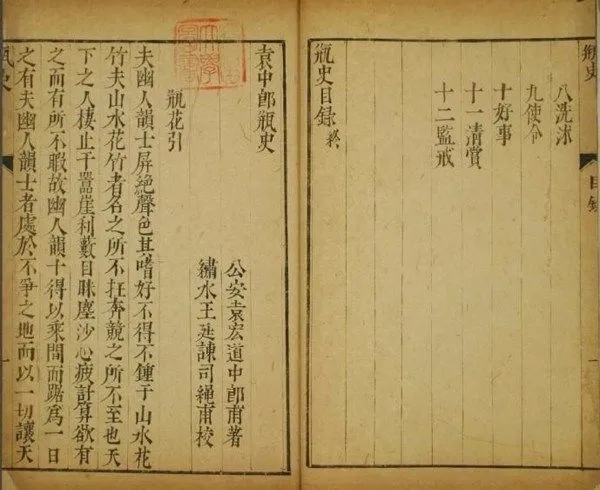 瓶史 目錄 一
八洗沐
九使令
十好事
十一清賞
十二監戒
瓶史目錄 終
袁中郎瓶史
公安袁宏道中郎甫著
繡水王廷諫司繩甫校
瓶花引
夫幽人韻士屏絶聲色其嗜好不得不鍾于山水花
竹夫山水花竹者名之所不在奔競之所不至也天
下之人棲止于囂崖利數目眯塵沙心疲計算欲有
之而有所不暇故幽人韻士得以乘間而踞爲一日
之有夫幽人韻士者處於不爭之地而以一切讓天
瓶史 一